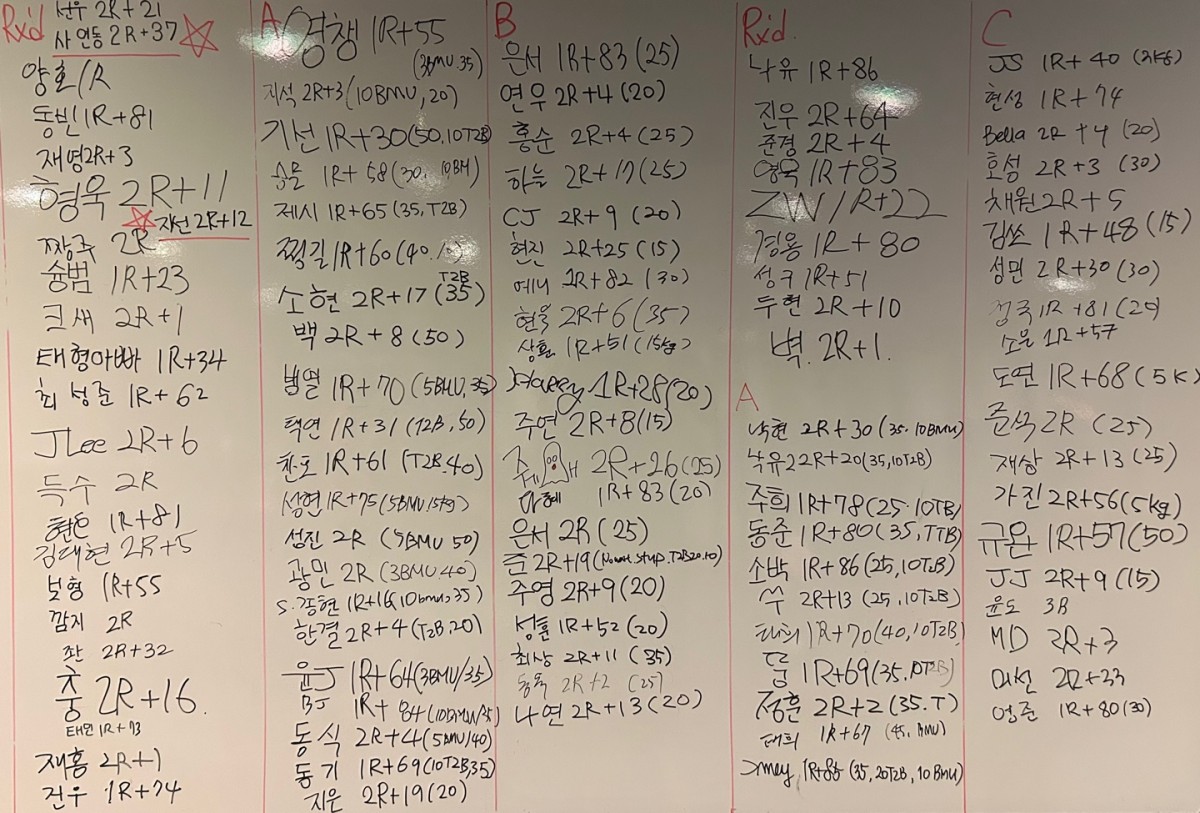 Rx'd
선우 2R+21
사 연동 2R+37
양호 1R
동빈 1R+81
재영 2R+3
형욱 2R+11
자선 2R+12
짱구 2R
슝범 1R+23
크새 2R+1
태형아빠 1R+34
최성준 1R+62
JLee 2R+6
득수 2R
1R+81
김대현 2R+5
보형 1R+55
깜지 2R
좐 2R+32
충 2R+16
태민 1R+73
재홍 2R+1
건우 1R+74
A
영챙 1R+55
(3BMU.35)
지석 2R+3 (10BMU, 20)
기선 1R+30 (50, 10T2B)
1R+58 (30, 10BM)
제시 1R+65 (35, T2B)
찍길 1R+60 (40.10)
소현 2R+17 (35) T2B
백 2R+8 (50)
범열 1R+70 (5BMU, 35)
택연 1R+31 (12B, 50)
찬호 1R+61 (T2B.40)
성현 1R+75 (5BMU/15kg)
성진 2R (5BMU 50)
광민 2R (3BMU.40)
S.강현 1R+16 (10bmu, 35)
한결 2R+4 (T2B, 20)
윤J 1R+64 (3BMU/35)
BJ 1R+84 (10BMU/35)
동식 2R+4 (5BMU/40)
동기 1R+69 (10T2B, 35)
지은 2R+19 (20)
B
은서 1R+83 (25)
연우 2R+4 (20)
홍순 2R+4 (25)
하늘 2R+17 (25)
CJ 2R+9 (20)
현진 2R+25 (15)
예니 1R+82 (30)
현욱 2R+6 (35)
상훈 1R+51 (15kg)
Harry 1R+28 (20)
주연 2R+8 (15)
2R+26 (25)
마혜 1R+83 (20)
은서 2R (25)
준 2R+19
주영 2R+9 (20)
성훈 1R+52 (20)
최상 2R+11 (35)
동욱 2R+2 (25)
나연 2R+13 (20)
Rx'd.
낙유 1R+86
진우 2R+64
준경 2R+4
영욱 1R+83
ZW 1R+22
경용 1R+80
성구 1R+51
두현 2R+10
벽. 2R+1.
A
낙현 2R+30 (35.10BMU)
낙유2 2R+20 (35, 10T2B)
주희 1R+78 (25.10TB)
동준 1R+80 (35, TTB)
소박 1R+86 (25, 10T2B)
쑤 2R+13 (25, 10T2B)
1R+70 (40, 10T2B)
듬 1R+69 (35.10T2B)
정훈 2R+2 (35.T)
태희 1R+67 (45, BMU)
1R+85 (35, 20T2B, 10BMU)
C
JS 1R+40
현성 1R+74
Bella 2R+4 (20)
호섬 2R+3 (30)
채원 2R+5
김쏘 1R+48 (15)
성민 2R+30 (30)
정국 1R+81 (20)
소윤 1R+57
도연 1R+68 (5K)
준석 2R (25)
재상 2R+13 (25)
가진 2R+56 (5kg)
규온 1R+57 (50)
JJ 2R+9 (15)
윤도 3R
MD 2R+3
미선 2R+33
영준 1R+80 (30)